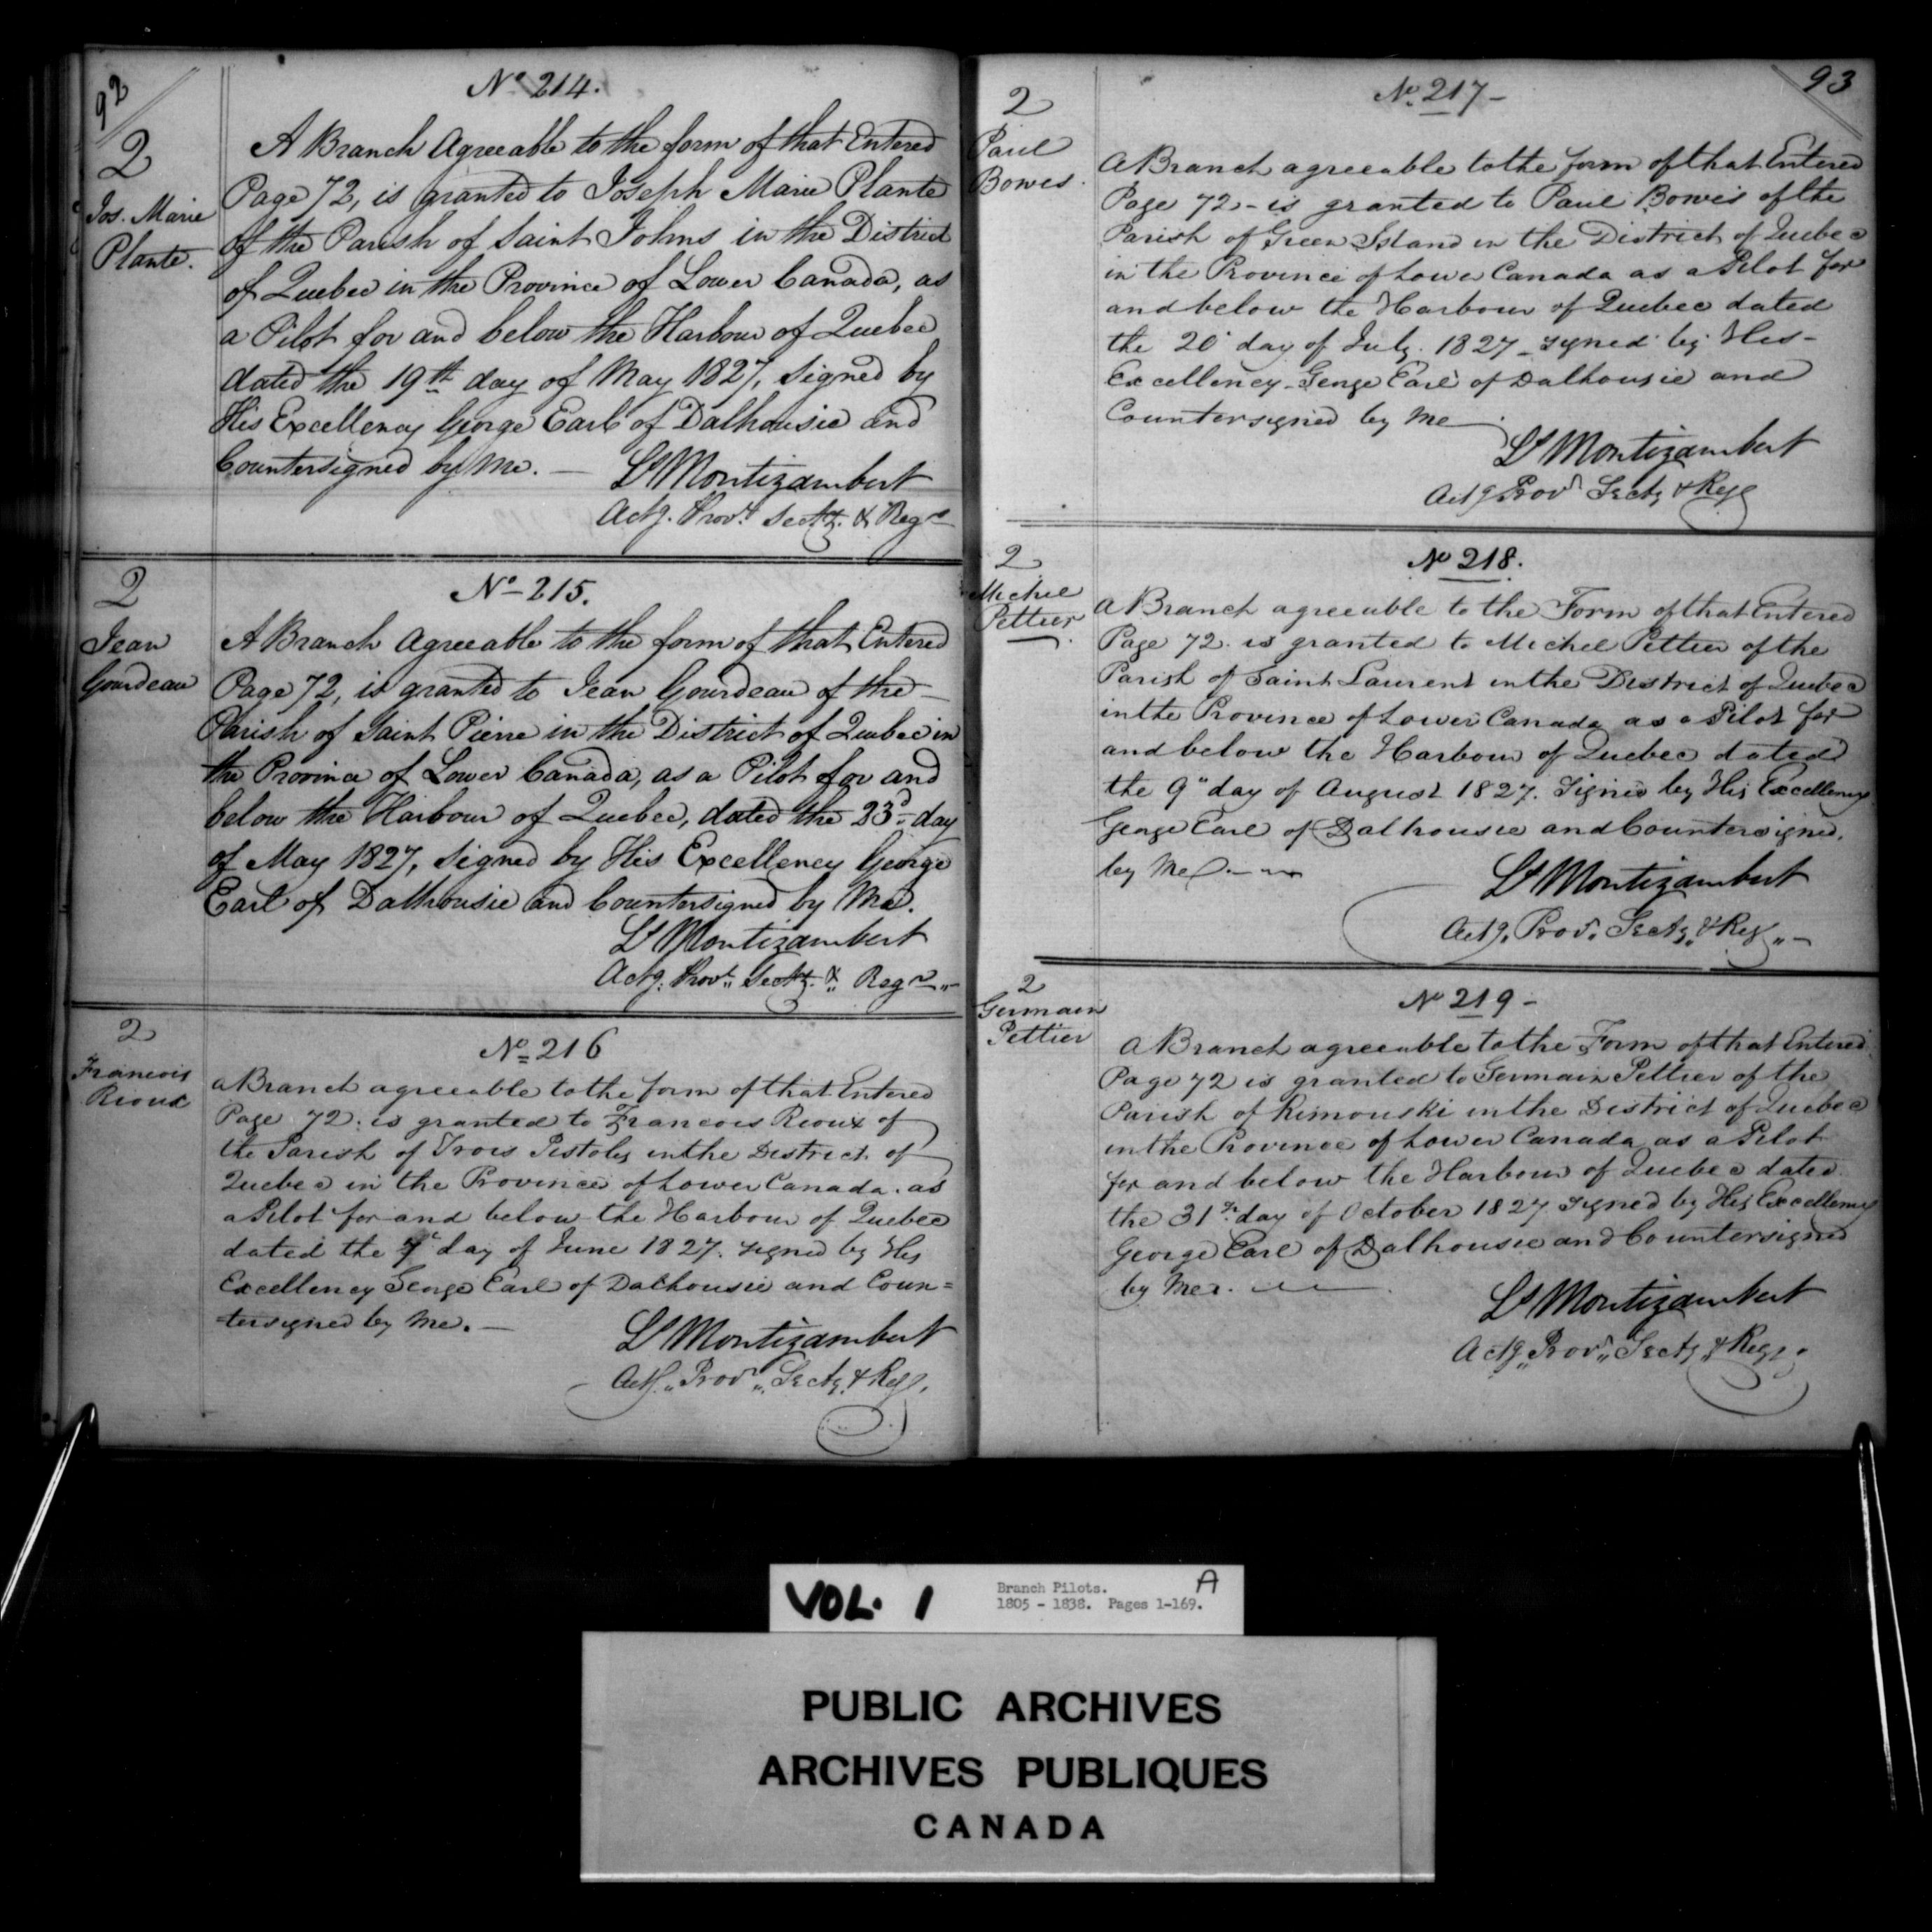 92
No 214.
2
Jos. Marie
Plante.
A Branch Agreeable to the form of that Entered
Page 72, is granted to Joseph Marie Plante
of the Parish of Saint Johns in the District
of Quebec in the Province of Lower Canada, as
a Pilot for and below the Harbour of Quebec
dated the 19th day of May 1827, Signed by
His Excellency George Earl of Dalhousie and
Countersigned by Me. —
Ls Montizambert
Actg. Provl Secty. & Regr
2
Jean
Gourdeau
No 215.
A Branch Agreeable to the form of that Entered
Page 72, is granted to Jean Gourdeau of the
Parish of Saint Pierre in the District of Quebec in
the Province of Lower Canada, as a Pilot for and
below the Harbour of Quebec, dated the 23d day
of May 1827, Signed by His Excellency George
Earl of Dalhousie and Countersigned by Me.
Ls Montizambert
Actg. Provl Secty. & Regr
2
Francois
Rioux
No 216
a Branch agreeable to the form of that Entered
Page 72. is granted to Francois Rioux of
the Parish of Trois Pistoles in the District of
Quebec in the Province of Lower Canada. as
a Pilot for and below the Harbour of Quebec
dated the day of June 1827. signed by His
Excellency George Earl of Dalhousie and Coun=
=tersigned by Me. —
Ls Montizambert
Actg. Provl Secty & Reg.
93
2
Paul
Bowes.
No. 217 -
a Branch agreeable to the form of that Entered
Page 72 - is granted to Paul Bowes of the
Parish of Green Island in the District of Quebec
in the Province of Lower Canada as a Pilot for
and below the Harbour of Quebec dated
the 20 day of July. 1827 - signed by His -
Excellency - George Earl of Dalhousie and
Countersigned by Me
Ls Montizambert
Actg Provl Secty & Reg
2
Michel
Pettier
No 218.
a Branch agreeable to the Form of that Entered
Page 72. is granted to Michel Pettier of the
Parish of Saint Laurent in the District of Quebec
in the Province of Lower Canada as a Pilot for
and below the Harbour of Quebec dated
the 9" day of August 1827. Signed by His Excellency
George Earl of Dalhousie and Countersigned.
by Me
Ls Montizambert
Actg. Prov. Secty & Reg
2
Germain
Pettier
No 219 -
a Branch agreeable to the Form of that Entered
Page 72 is granted to Germain Pettier of the
Parish of Rimouski in the District of Quebec
in the Province of Lower Canada as a Pilot
for and below the Harbour of Quebec dated
the 31st day of October 1827 signed by His Excellency
George Earl of Dalhousie and Countersigned
by Me.
Ls Montizambert
Actg Prov Secty & Reg
VOL. 1
Branch Pilots.
1805 - 1838. Pages 1-169.
A
PUBLIC ARCHIVES
ARCHIVES PUBLIQUES
CANADA